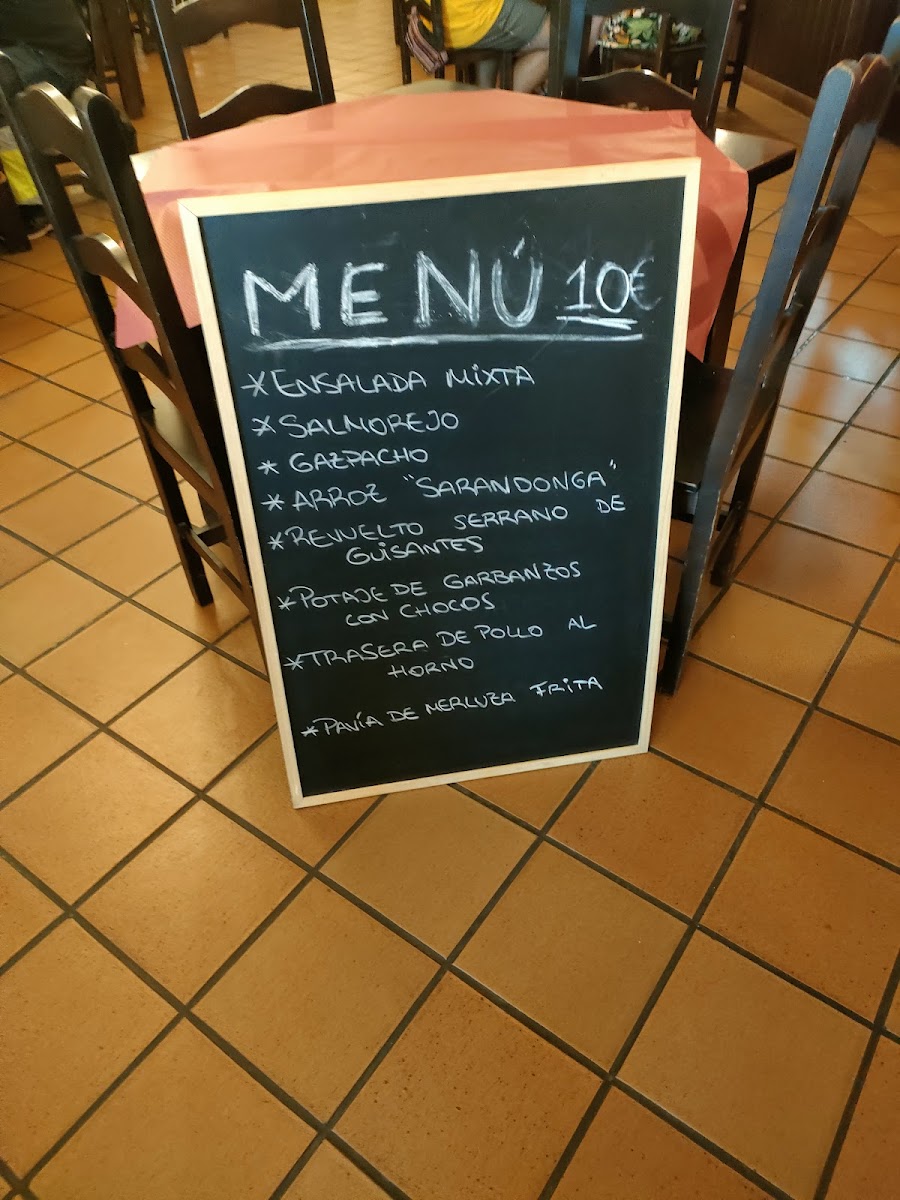 MENÚ 10€
*ENSALADA MIXTA
*SALMOREJO
*GAZPACHO
*ARROZ "SARANDONGA"
*REVUELTO SERRANO DE
GUISANTES
*POTAJE DE GARBANZOS
CON CHOCOS
*TRASERA DE POLLO AL
HORNO
*PAVÍA DE MERLUZA FRITA